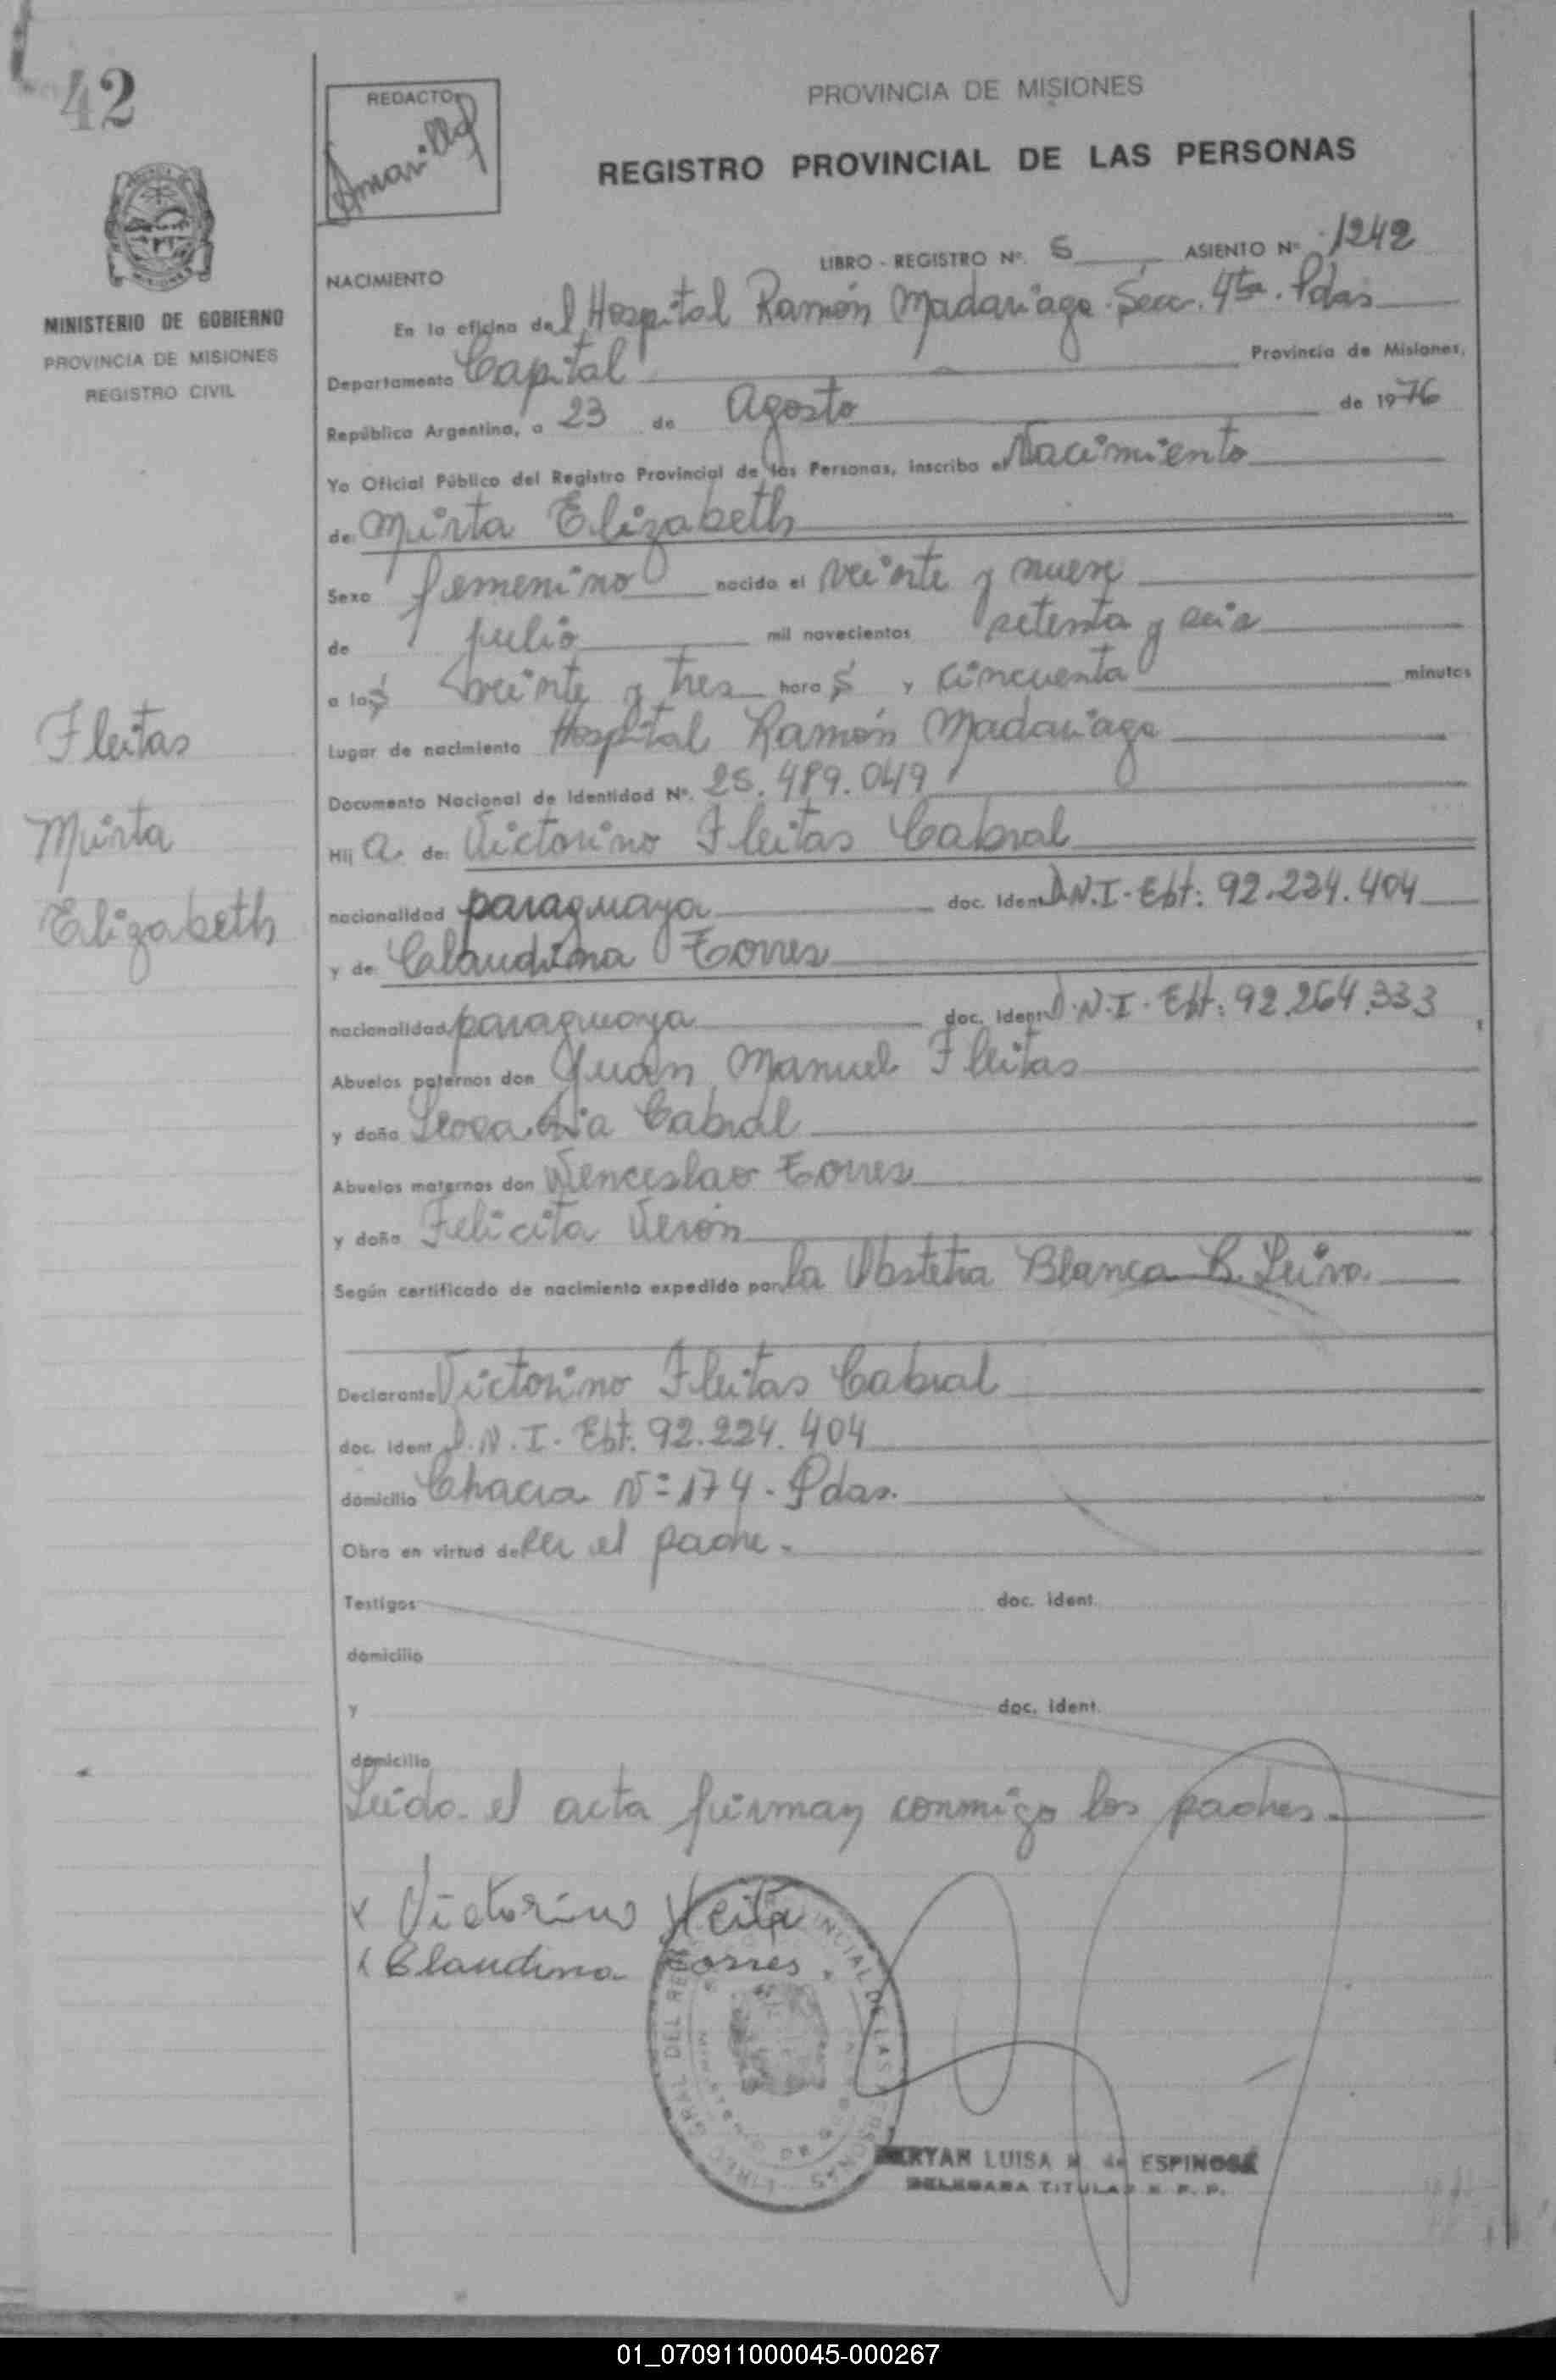 42
REDACTO
PROVINCIA DE MISIONES
REGISTRO PROVINCIAL DE LAS PERSONAS
LIBRO - REGISTRO Nº. 5 ASIENTO Nº 1242
NACIMIENTO
MINISTERIO DE GOBIERNO
PROVINCIA DE MISIONES
REGISTRO CIVIL
En la oficina del Hospital Ramón Madariaga. Secc. 4ta. Pdas
Departamento Capital Provincia de Misiones,
República Argentina, a 23 de Agosto de 1976
Yo Oficial Público del Registro Provincial de las Personas, inscribo el Nacimiento
de Mirta Elizabeth
Sexo femenino nacido el veinte y nueve
de julio mil novecientos setenta y seis
a las veinte y tres horas y cincuenta minutos
Lugar de nacimiento Hospital Ramón Madariaga
Documento Nacional de Identidad Nº. 25.489.049
Hija de: Victorino Fleitas Cabral
nacionalidad paraguaya doc. Ident. D.N.I-Ext: 92.224.404
y de Claudina Torres
nacionalidad paraguaya doc. Ident. D.N.I. Ext: 92.264.333
Abuelos paternos don Juan Manuel Fleitas
y doña Leocadia Cabral
Abuelos maternos don Wenceslao Torres
y doña Felicita Verón
Según certificado de nacimiento expedido por la Obstetra Blanca B. Leiva
Declarante Victorino Fleitas Cabral
doc. Ident D.N.I. Ext: 92.224.404
domicilio Chacra Nº 174 - Pdas.
Obra en virtud de ser el padre.
Testigos doc. Ident.
domicilio
y doc. Ident.
domicilio
Leído el acta firman conmigo los padres.
x Victorino Fleita
x Claudina Torres
Fleitas
Mirta
Elizabeth
LUISA de ESPINOSA
DELEGADA TITULAR R. P. P.
01_070911000045-000267